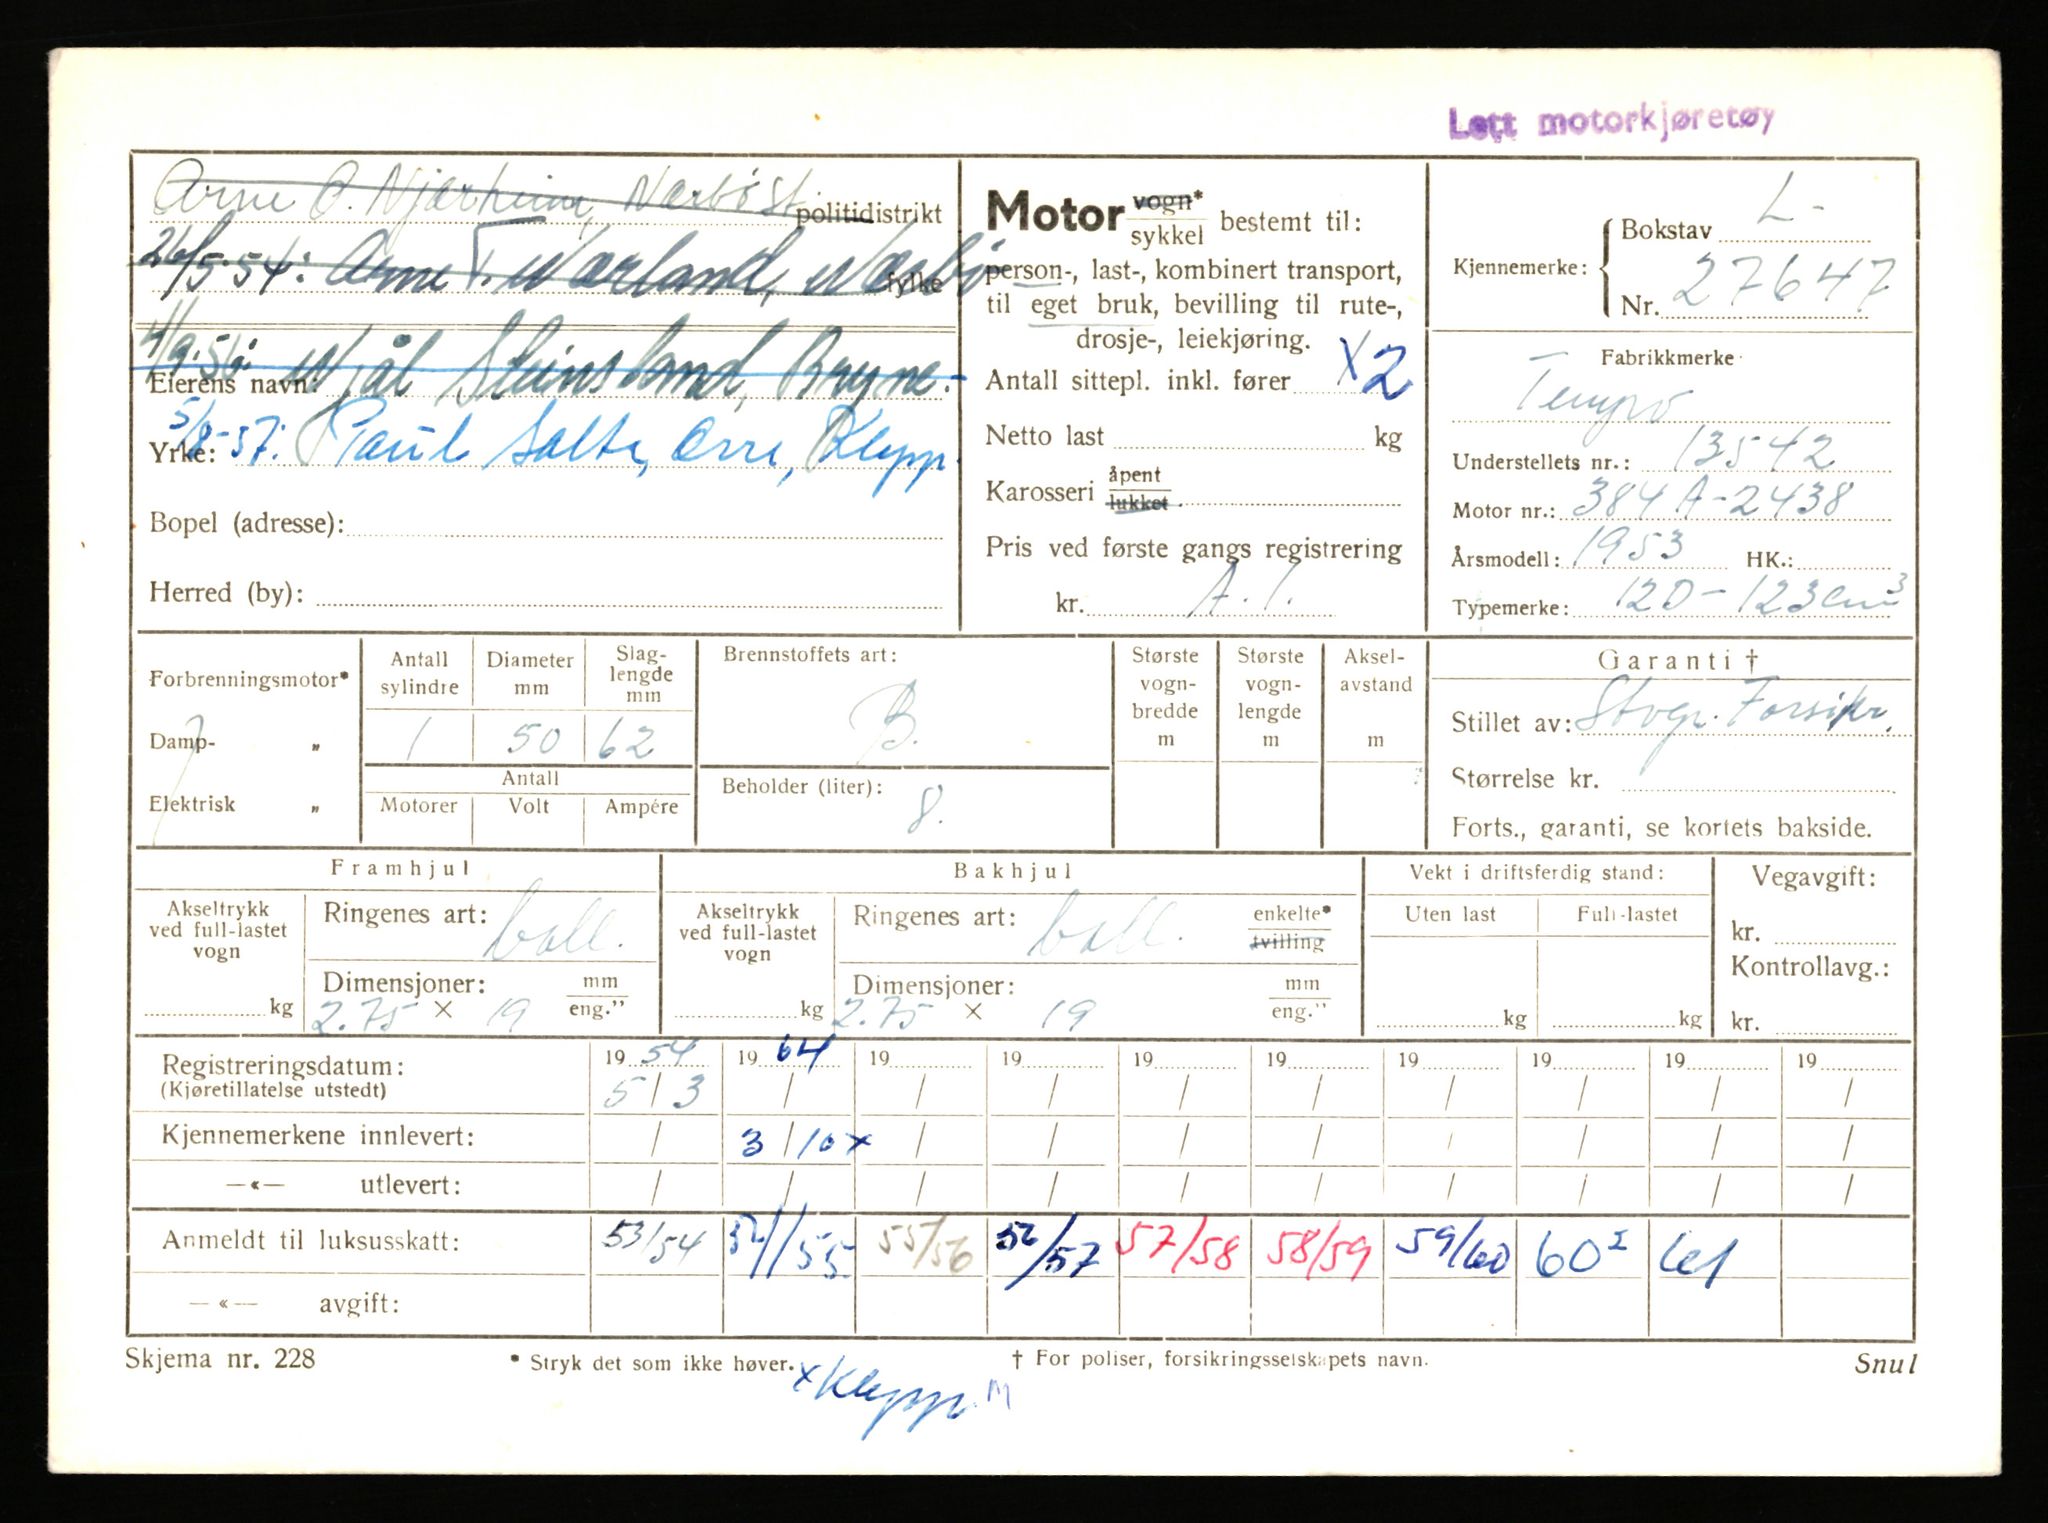 Lett motorkjøretøy
Arne O. Njærheim, Nærbø St. politidistrikt
26/5-54: Arne T. Nærland, Nærbø fylke
4/9.56: Njål Steinsland, Bryne.-
Eierens navn:
5/8-57: Paul Salte, Orre, Klepp.
Yrke:
Bopel (adresse):
Herred (by):
Motor vogn* / sykkel bestemt til:
person-, last-, kombinert transport,
til eget bruk, bevilling til rute-,
drosje-, leiekjøring.
Antall sittepl. inkl. fører X2
Netto last kg
Karosseri åpent / lukket
Pris ved første gangs registrering
kr. A.I.
Kjennemerke: Bokstav L-
Nr. 27647
Fabrikkmerke
Tempo
Understellets nr.: 13542
Motor nr.: 384 A-2438
Årsmodell: 1953 HK.:
Typemerke: 120 - 123 cm³
Forbrenningsmotor*
Damp- „
Elektrisk „
Antall sylindre Diameter mm Slaglengde mm
1 50 62
Antall
Motorer Volt Ampére
Brennstoffets art:
B.
Beholder (liter):
8.
Største vognbredde m
Største vognlengde m
Akselavstand m
Garanti †
Stillet av: Stvgr. Forsikr.
Størrelse kr.
Forts., garanti, se kortets bakside.
Framhjul
Akseltrykk ved full-lastet vogn
kg
Ringenes art: ball.
Dimensjoner: mm / eng."
2.75 × 19
Bakhjul
Akseltrykk ved full-lastet vogn
kg
Ringenes art: ball. enkelte* / tvilling
Dimensjoner: mm / eng."
2.75 × 19
Vekt i driftsferdig stand:
Uten last Full-lastet
kg kg
Vegavgift:
kr.
Kontrollavg.:
kr.
Registreringsdatum: 19 54 19 64 19 19 19 19 19 19 19 19
(Kjøretillatelse utstedt) 5/3 / / / / / / / / /
Kjennemerkene innlevert: / 3/10 x / / / / / / / /
—«— utlevert: / / / / / / / / / /
Anmeldt til luksusskatt: 53/54 54/55 55/56 56/57 57/58 58/59 59/60 60² 61
—«— avgift:
Skjema nr. 228 * Stryk det som ikke høver. † For poliser, forsikringsselskapets navn. Snul
x Klepp. M